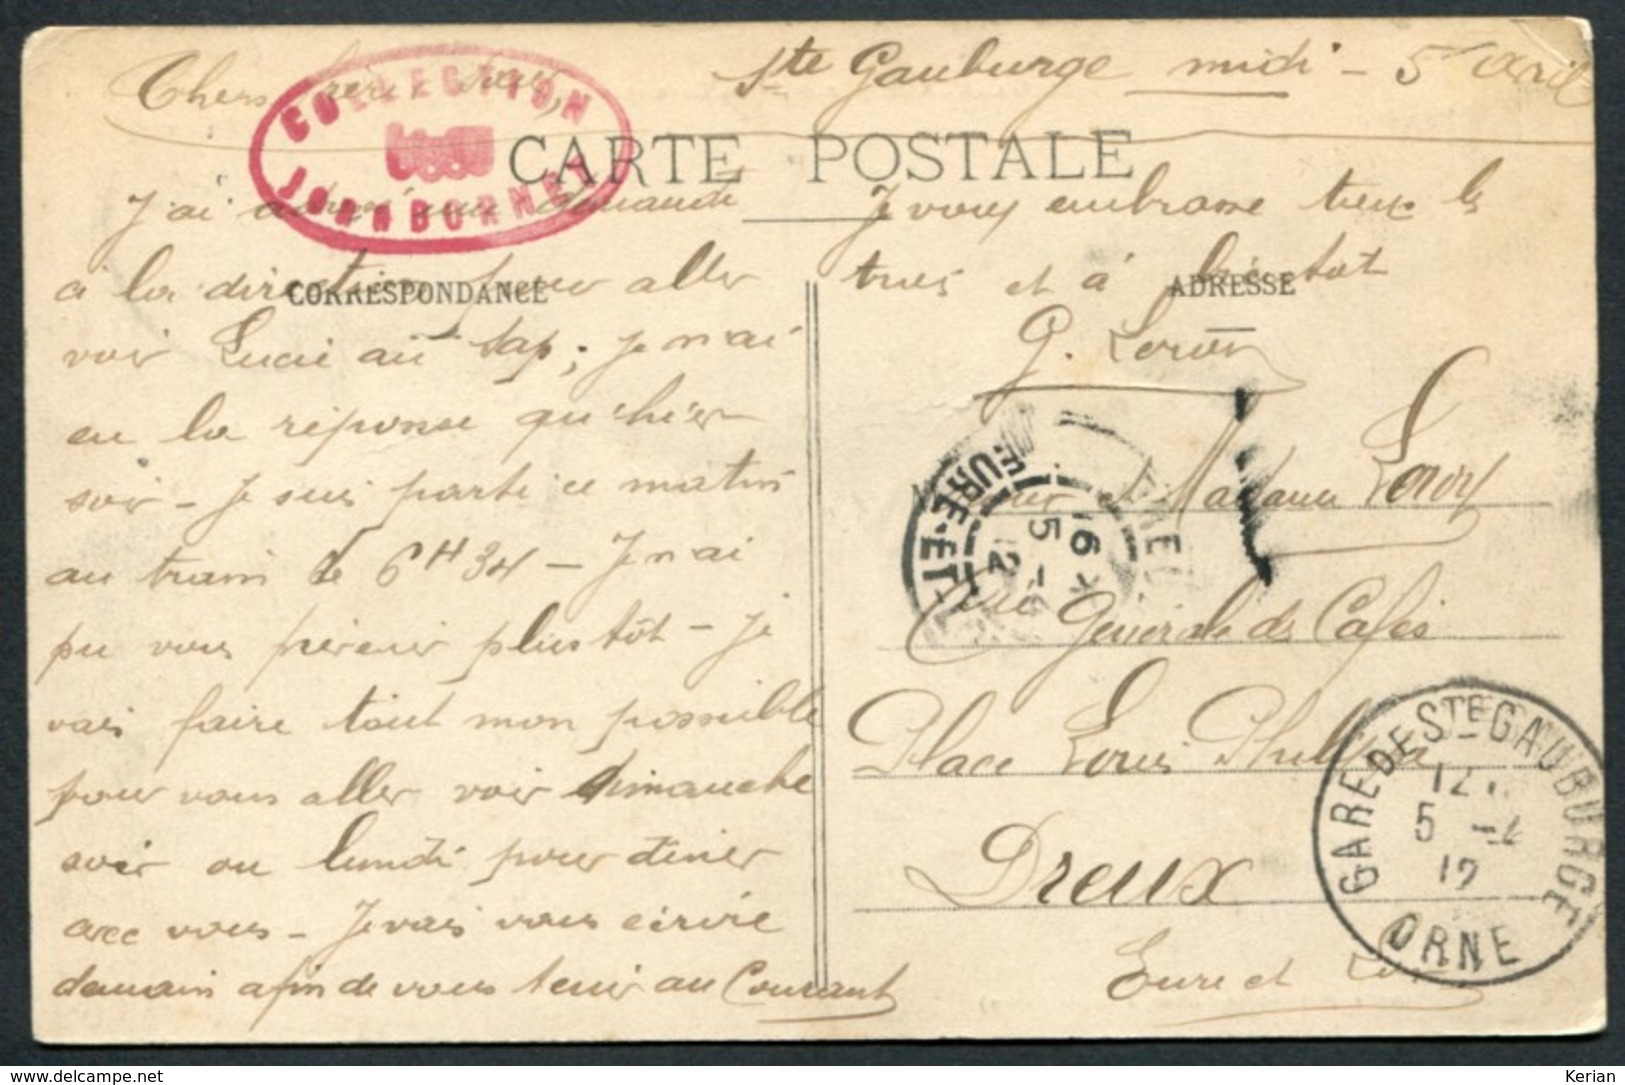 Ste Gauburge midi – 5 avril
Chers
COLLECTION
CARTE POSTALE
J'ai une demande
à la direction pour aller
CORRESPONDANCE
voir Lucie au Sap; je n'ai
eu la réponse qu'hier
soir – Je suis parti ce matin
au train de 6H34 – Je n'ai
pu vous prévenir plus tôt – Je
vais faire tout mon possible
pour vous aller voir dimanche
soir ou lundi pour diner
avec vous – Je vais vous écrire
demain afin de vous tenir au Courant
Je vous embrasse tous les
tres et à bientot
ADRESSE
et Madame Leroy
EURE-ET-
Générale des Cafés
Place Louis Philippe
Dreux
Eure et
GARE DE STE GAUBURGE
12
5 -4
12
ORNE
delcampe.net
Kerian